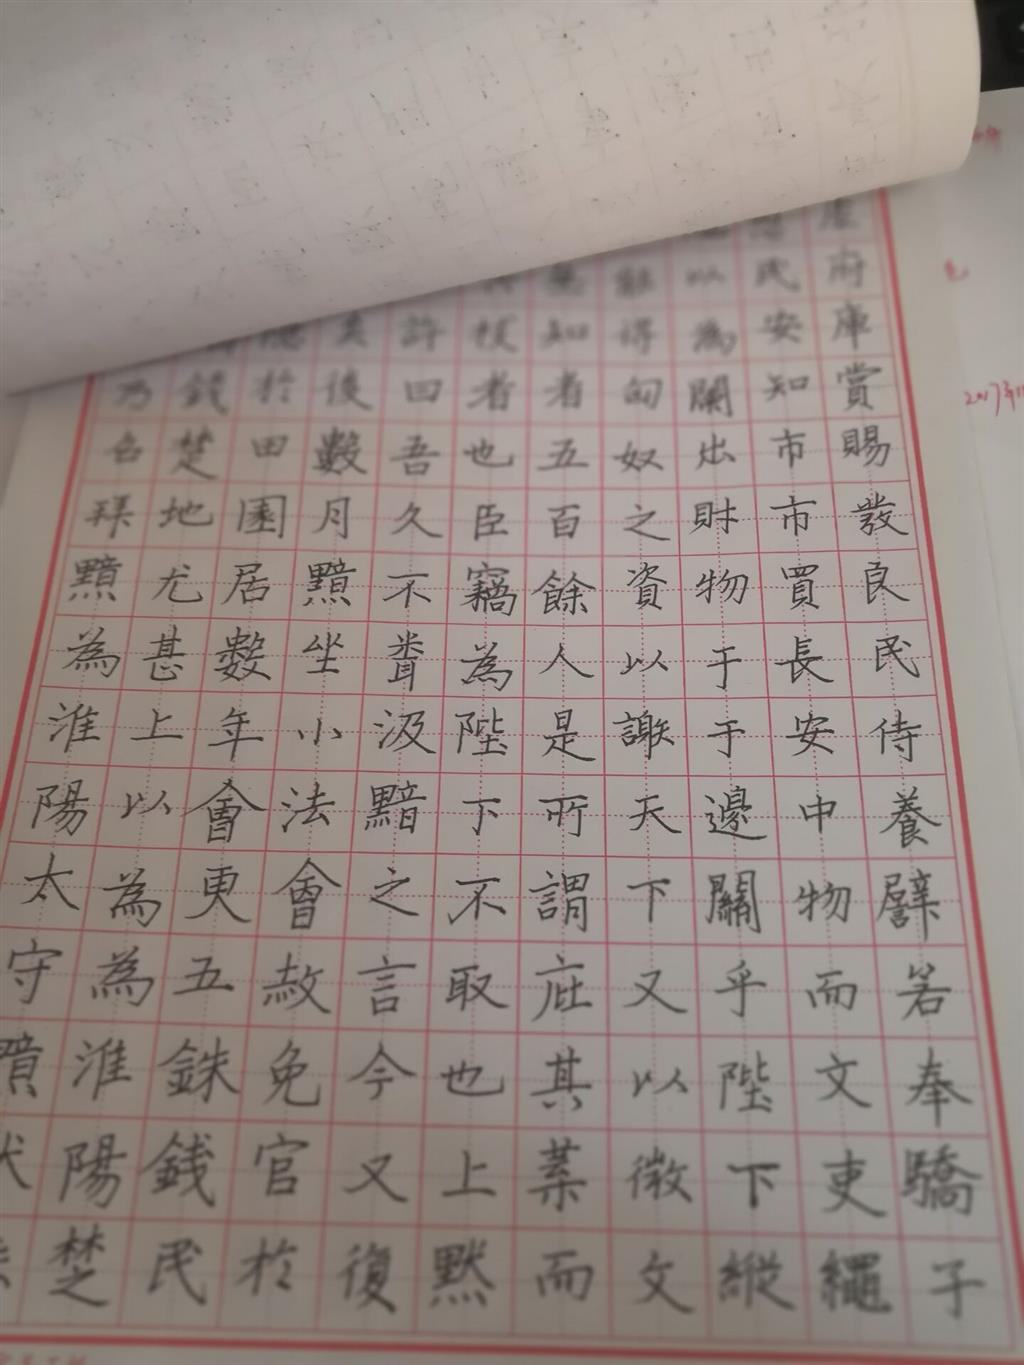 府庫賞賜發良民侍養譬若奉驕子
民安知市市買長安中物而文吏繩
以為闌出財物于邊關乎陛下縱
能得匈奴之資以謝天下又以微文
無知者五百餘人是所謂庇其葉而
枝者也臣竊為陛下不取也上默
許曰吾久不聞汲黯之言今又復
矣後數月黯坐小法會赦免官於
隱於田園居數年會更五銖錢民
錢楚地尤甚上以為為淮陽楚
乃召拜黯為淮陽太守黯伏
2017年